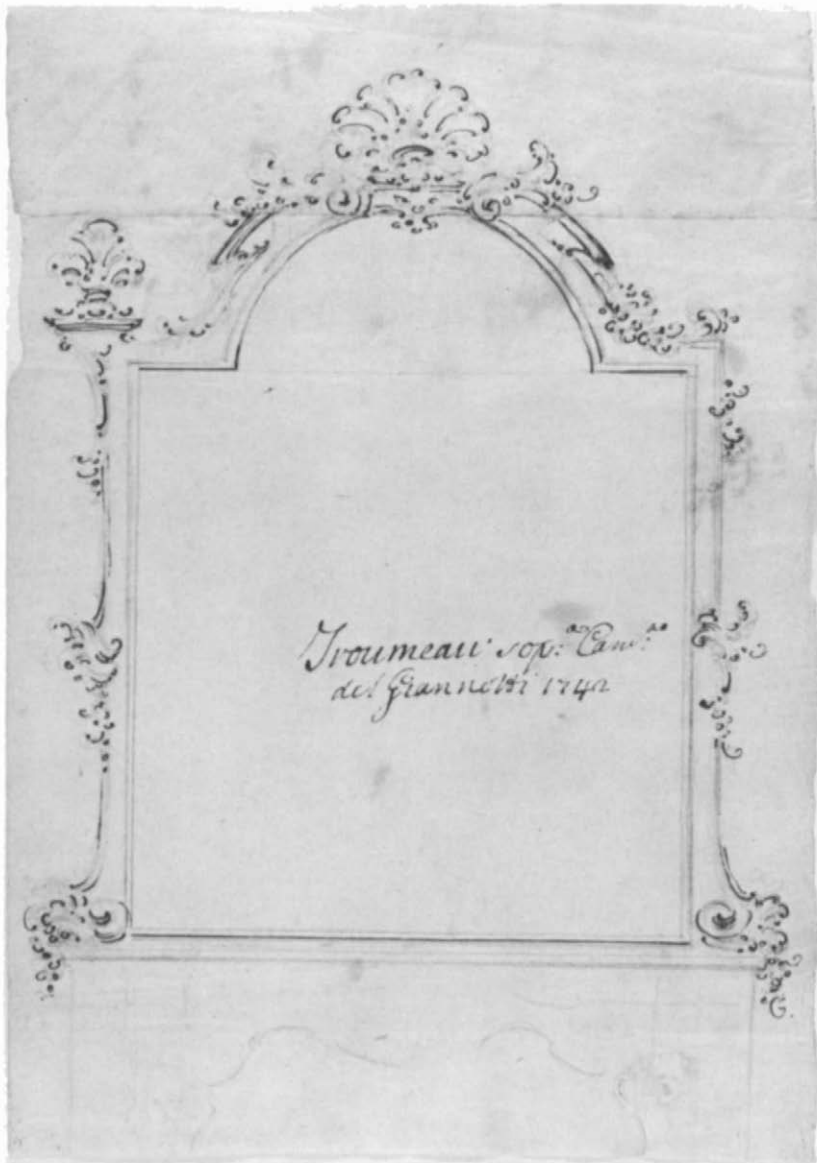 Troumeau sop:ᵃ Cam:ⁿᵒ
del Giannotti 1742